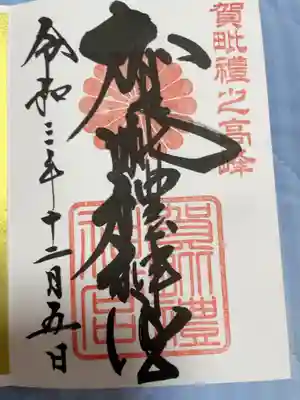 賀毗禮之高峰
賀毗禮神宮
令和三年十二月五日